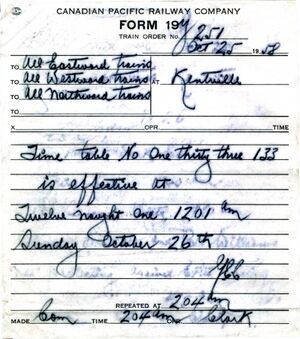 CANADIAN PACIFIC RAILWAY COMPANY
FORM 19Y
TRAIN ORDER No. Y251
Oct 25 1958
TO All Eastward trains
TO All Westward trains AT Kentville
TO All Northward trains
TO
X OPR TIME
Time table No One thirty three 133
is effective at
Twelve nought One 1201 am
Sunday October 26th
REPEATED AT 204 am
MADE Com TIME 204 am OPR. Clark